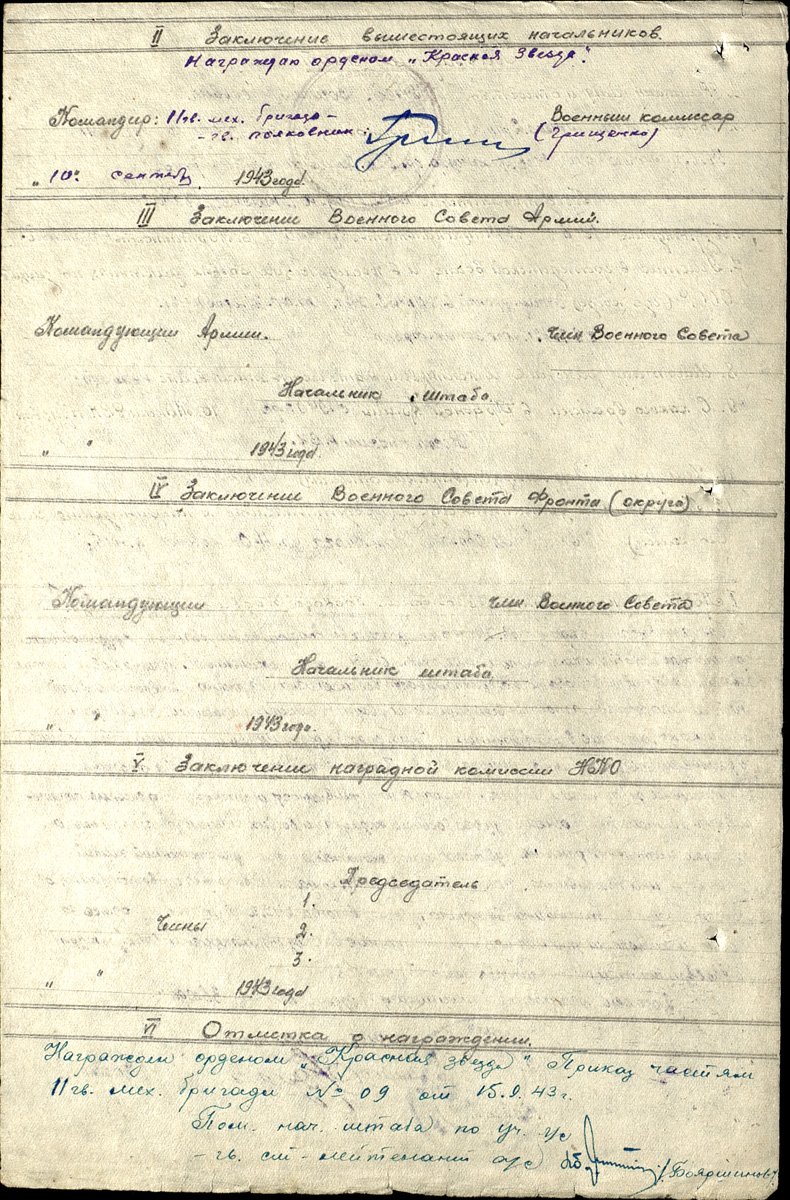 II Заключение вышестоящих начальников.
Награждаю орденом „Красная Звезда".
Командир: 11 гв. мех. бригады - Военный комиссар
- гв. полковник: (Грищенко)
„10" сентябр 1943 года.
III Заключение Военного Совета Армии.
Командующии Армии. Член Военного Совета
Начальник штаба
„ " 1943 года
IV Заключение Военного Совета Фронта (округа)
Командующии Член Военного Совета
Начальник штаба
„ " 1943 года.
V Заключение наградной комиссии НКО
Председатель
1.
Члены 2.
3.
„ " 1943 года
VI Отметка о награждении.
Награжден орденом „Красная звезда" Приказ частям
11 гв. мех. бригады № 09 от 15.9.43 г.
Пом. нач. штаба по уч. у/с
- гв. ст. лейтенант а/с /Бояршинов/